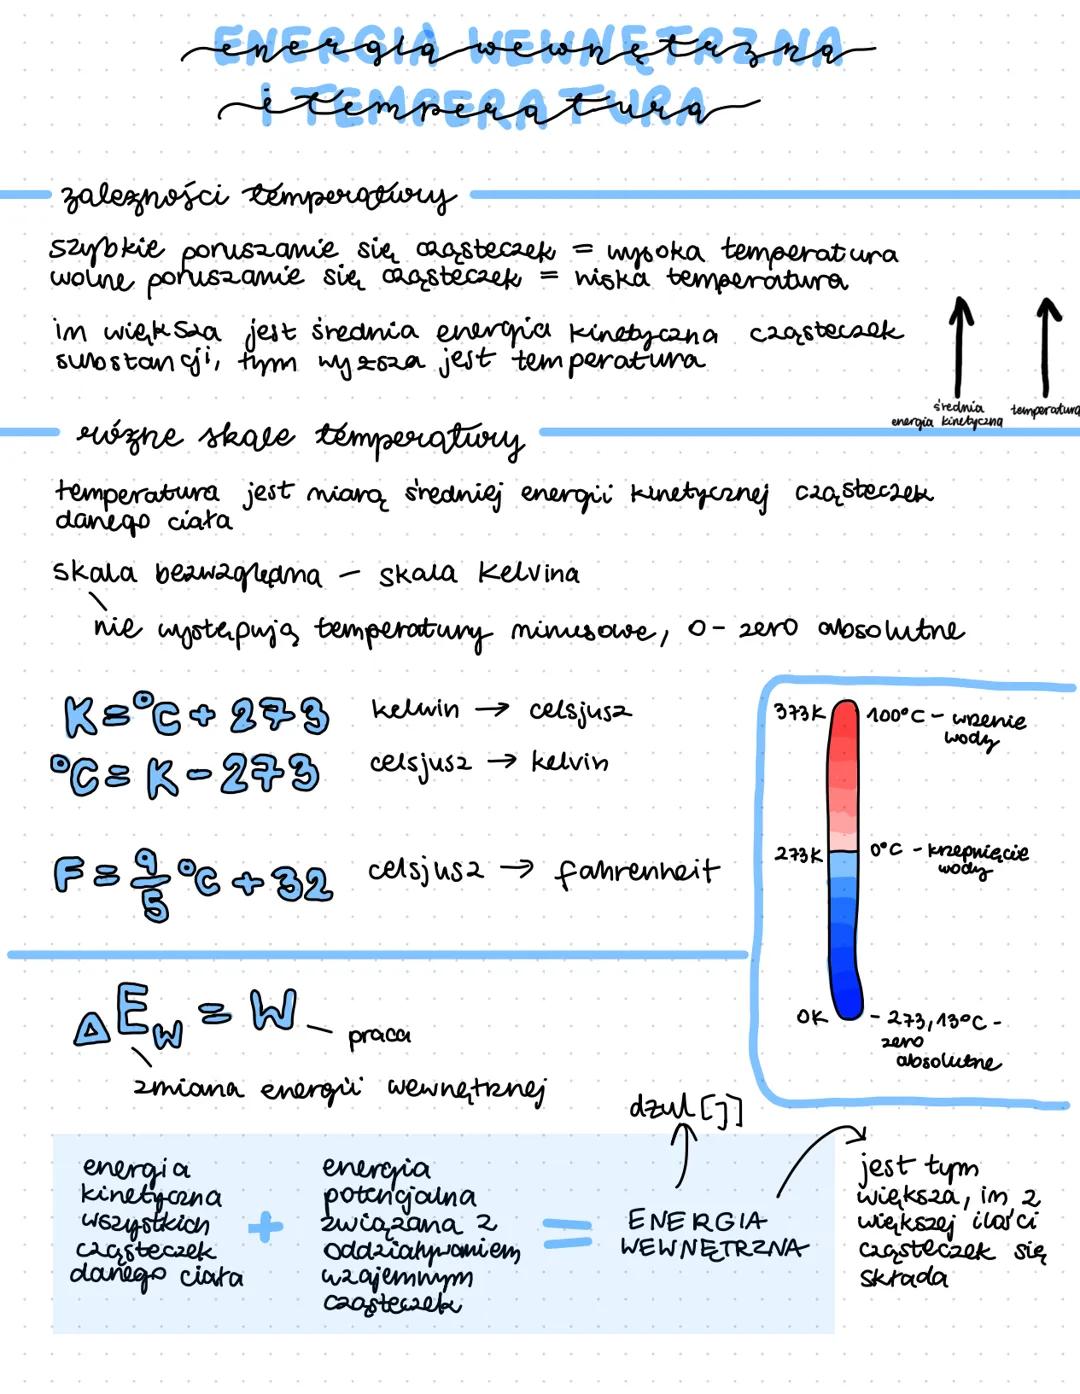 energia wewnętrzna
ENERGIA WEWNĘTRZNA
i temperatura
i TEMPERATURA
zależności temperatury
szybkie poruszanie się cząsteczek = wysoka temperatura
wolne poruszanie się cząsteczek = niska temperatura
im większa jest średnia energia kinetyczna cząsteczek
substancji, tym wyższa jest temperatura
średnia
energia kinetyczna
temperatura
różne skale temperatury
temperatura jest miarą średniej energii kinetycznej cząsteczek
danego ciała
skala bezwzględna - skala Kelvina
nie występują temperatury minusowe, 0 - zero absolutne
K = °C + 273 kelwin → celsjusz
°C = K - 273 celsjusz → kelvin
F = 9/5 °C + 32 celsjusz → fahrenheit
373K 100°C - wrzenie
wody
273K 0°C - krzepnięcie
wody
0K - 273,13°C -
zero
absolutne
ΔEw = W
praca
zmiana energii wewnętrznej
dżul [J]
energia
kinetyczna
wszystkich
cząsteczek
danego ciała
+
energia
potencjalna
związana z
oddziaływaniem
wzajemnym
cząsteczek
=
ENERGIA
WEWNĘTRZNA
jest tym
większa, im z
większej ilości
cząsteczek się
składa